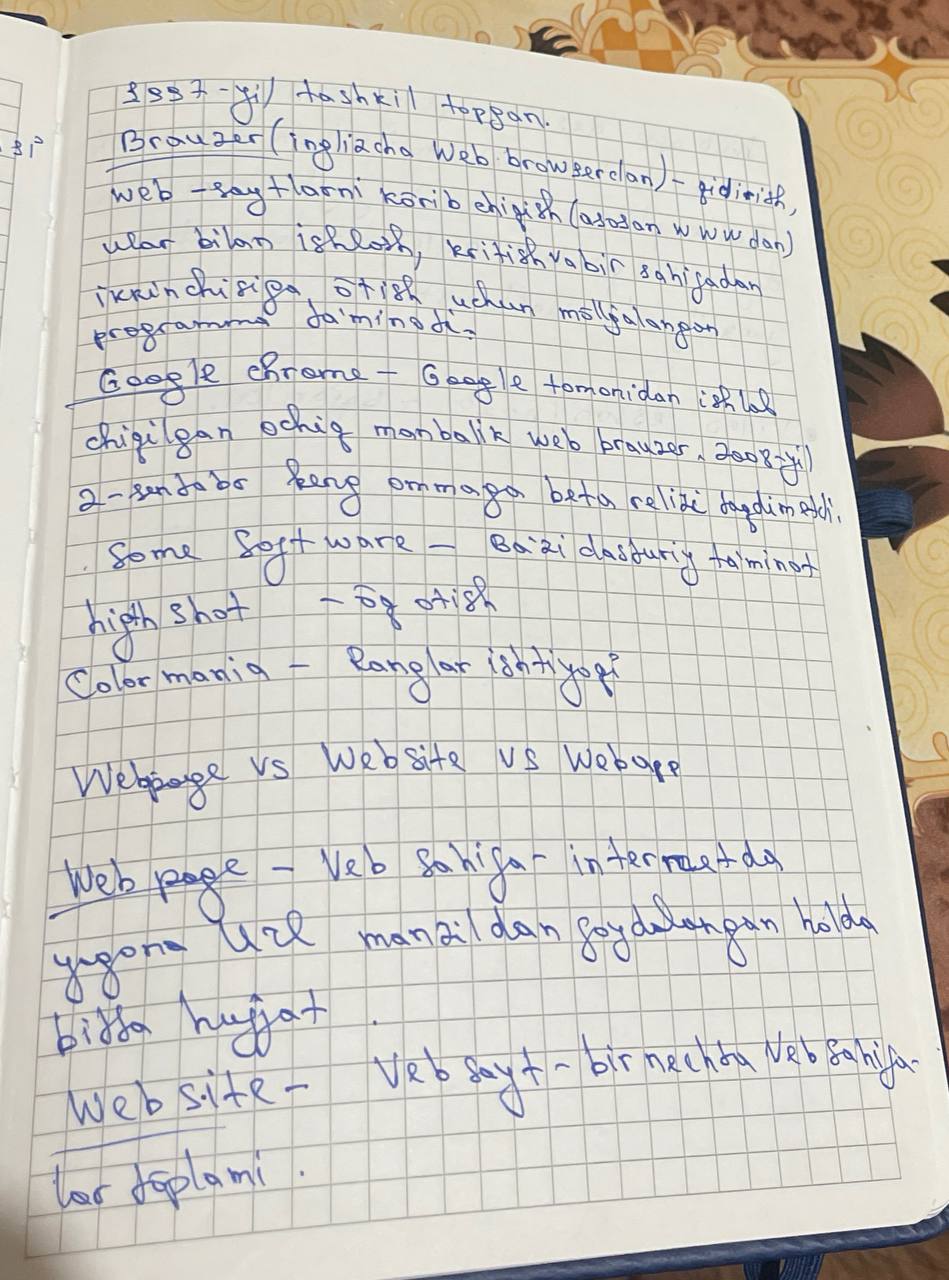 1997-yil tashkil topgan.
Brauzer (inglizcha Web browserdan) - qidirish,
web-saytlarni körib chiqish (asosan www dan)
ular bilan ishlash, kritish va bir sahifadan
ikkinchisiga ötish uchun mölljalangan
programma ta'minoti.
Google chrome - Google tomonidan ishlab
chiqilgan ochiq manbalik web brauzer. 2008-yil
2-sentabr keng ommaga beta relizi taqdim etdi.
Some Software - Ba'zi dasturiy ta'minot
high shot - öq otish
Color mania - Ranglar ishtiyoqi
Webpage vs Website vs Webapp
Web page - Veb sahifa - internetda
yagona Url manzildan foydalangan holda
bitta hujjat.
Web site - Veb sayt - bir nechta Veb sahifa-
lar töplami.